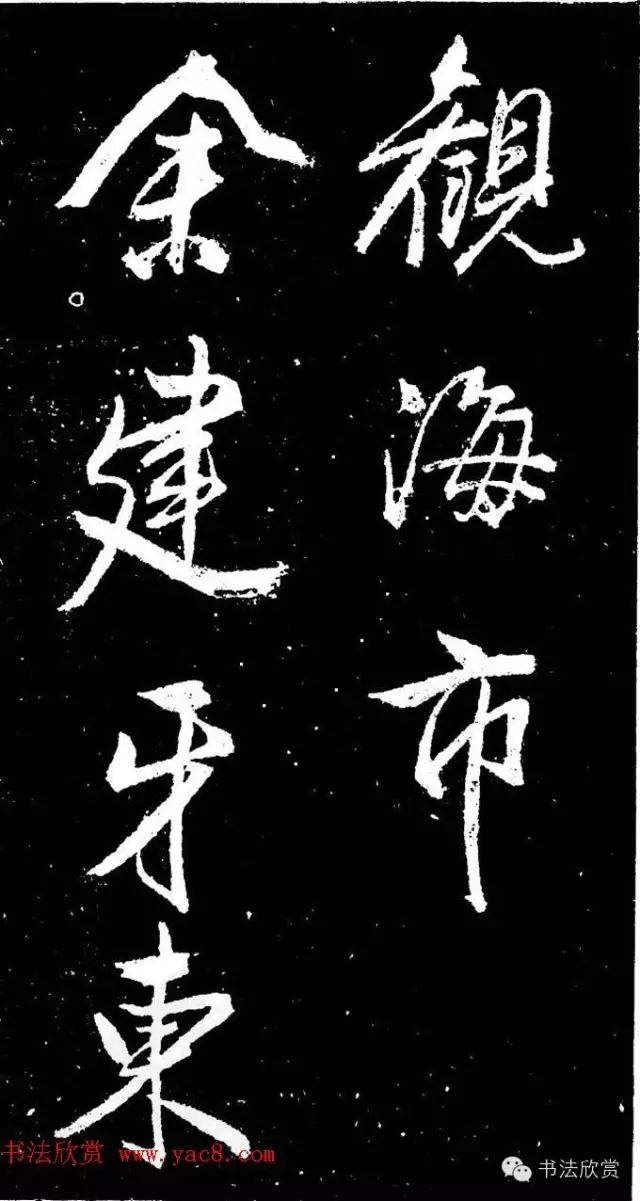 觀海市
余建牙東
书法欣赏 www.yac8.com
书法欣赏